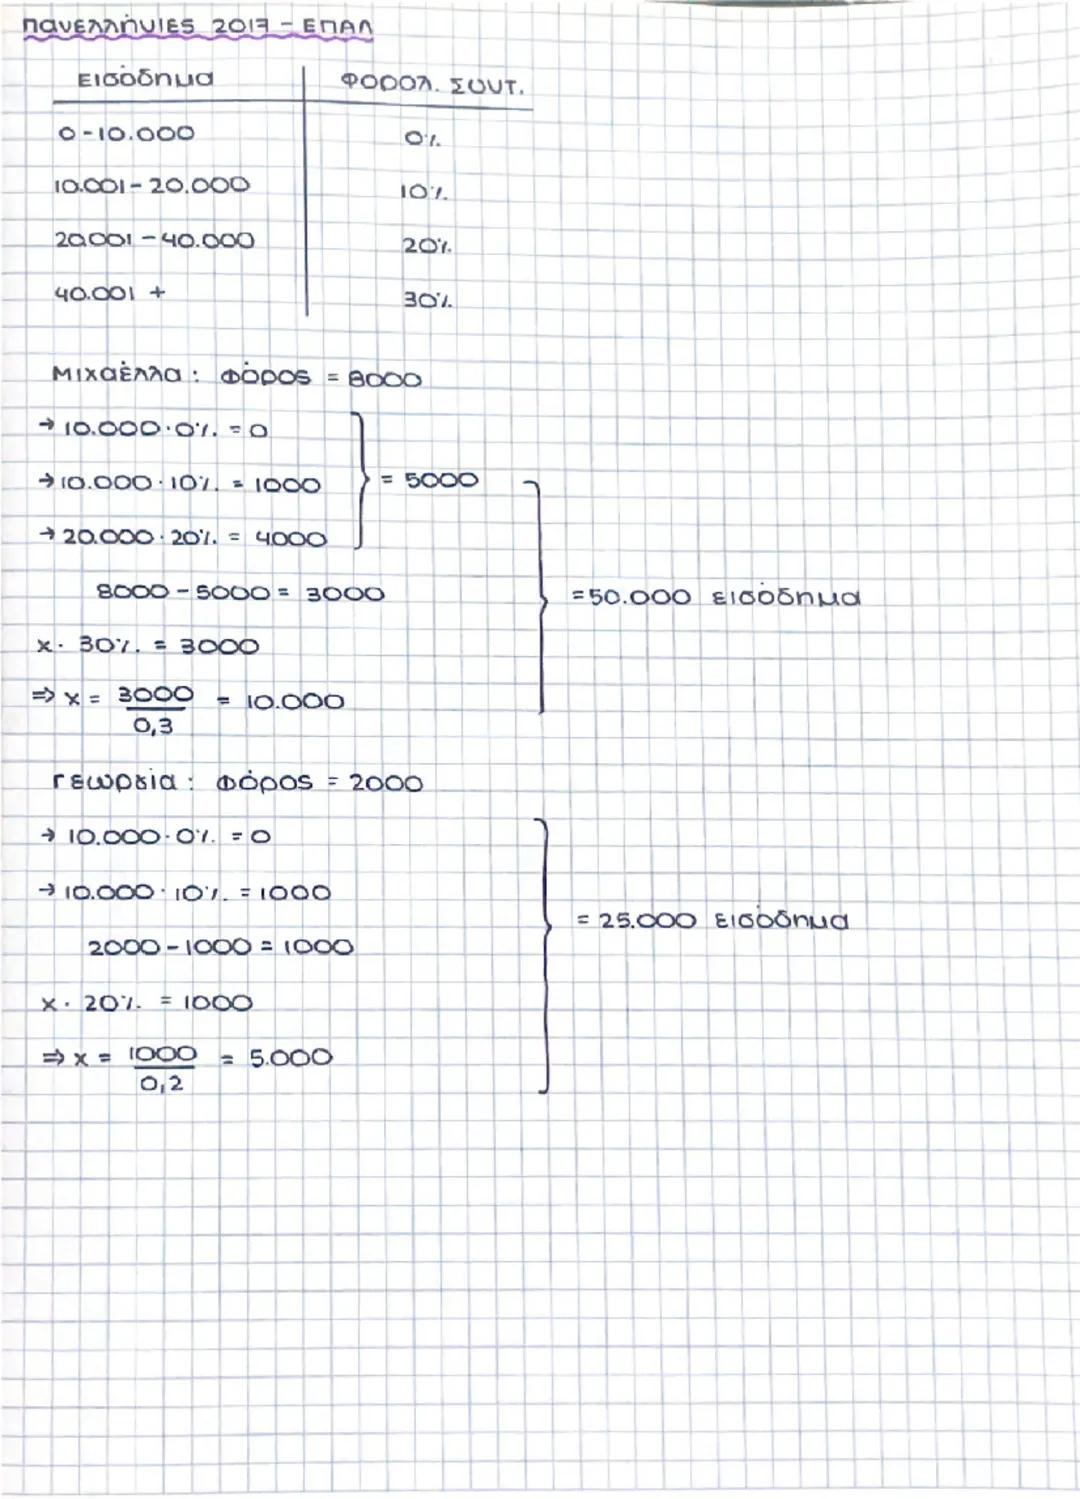 Πανελλήνιες 2017 - ΕΠΑΛ
Εισόδημα Φορολ. Συντ.
0-10.000 0%
10.001-20.000 10%
20.001-40.000 20%
40.001 + 30%
Μιχαέλλα: Φόρος = 8000
→ 10.000·0% = 0
→ 10.000·10% = 1000 = 5000
→ 20.000·20% = 4000
8000-5000 = 3000 = 50.000 εισόδημα
x· 30% = 3000
⇒ x = 3000/0,3 = 10.000
Γεωργία: Φόρος = 2000
→ 10.000·0% = 0
→ 10.000·10% = 1000
= 25.000 εισόδημα
2000-1000 = 1000
x· 20% = 1000
⇒ x = 1000/0,2 = 5.000